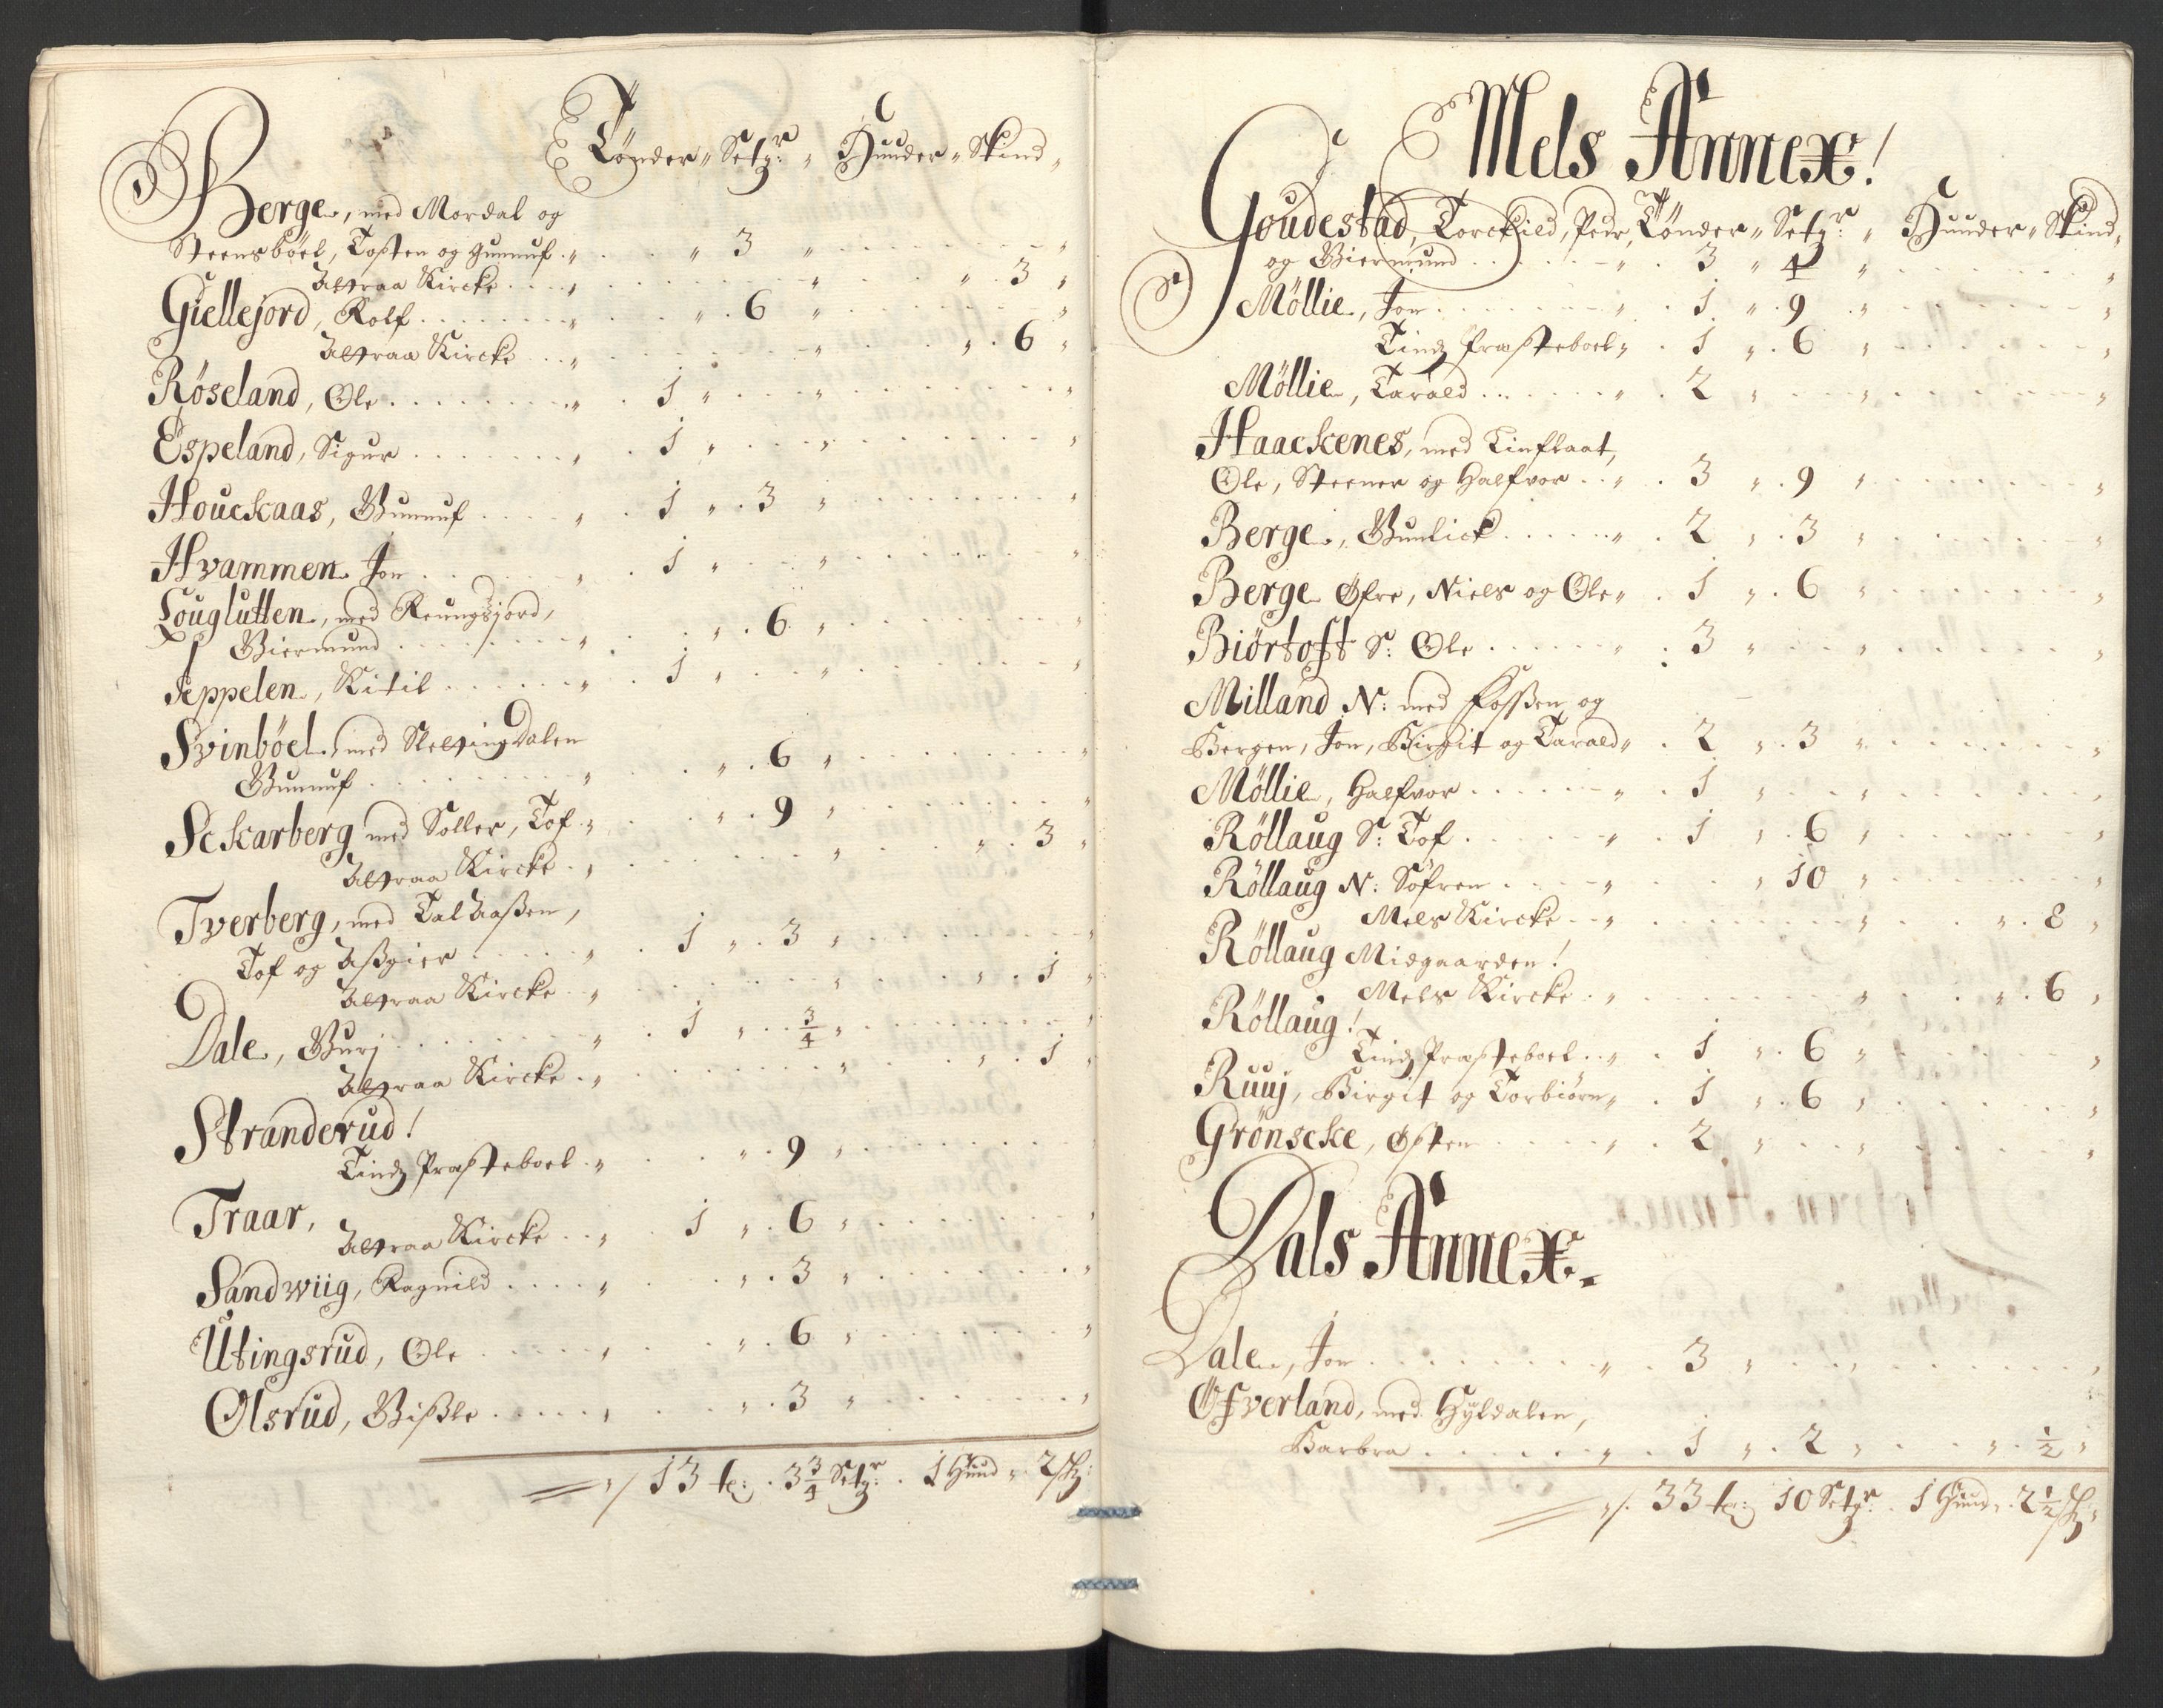 Tønder „ Setgr: „ Huuder „ Skind „
Berge, med Mordal og
Steensböel, Tosten og Gunnuf „ „ 3 „ „
Attraa Kircke „ „ „ 3 „
Giellejord, Rolf „ „ 6 „ „
Attraa Kircke „ „ „ 6 „
Röseland, Ole „ 1 „ „ „
Espeland, Sigur „ 1 „ „ „
Houckaas, Gunnuf „ 1 „ 3 „ „
Hvammen Jon „ 1 „ „ „
Louglutten, med Reungsjord,
Giermund „ „ 6 „ „
Seppelen, Kitil „ 1 „ „ „
Svinböel, med
Gunnuf „ „ 6 „ „
Sckarberg med Soller, Tof „ „ 9 „ „
Attraa Kircke „ „ „ 3 „
Tverberg, med
Tof og Aßgier „ 1 „ 3 „ „
Attraa Kircke „ „ „ 1 „
Dale, Gurj „ 1 „ 3/4 „ „
Attraa Kircke „ „ „ 1 „
Stranderud!
Tindz Præsteboel „ „ 9 „
Traar,
Attraa Kircke „ 1 „ 6 „ „
Sandwiig, Ragnild „ „ 3 „ „
Utingsrud, Ole „ „ 6 „ „
Olsrud, Gißle „ „ 3 „ „
13 t: 3 3/4 Setgr: 1 Huud „ 2 sk:
Mels Annex!
Goudestad, Torckild, Pedr, Tønder „ Setgr: „ Huuder „ Skind „
og Giermund „ 3 „ 4 „ „
Möllie, Jon „ 1 „ 9 „ „
Tindz Præsteboel „ 1 „ 6 „ „
Möllie, Tarald „ 2 „ „ „
Haackenes, med Tinflaat,
Ole, Steener og Halfvor „ 3 „ 9 „ „
Berge, Gunlick „ 2 „ 3 „ „
Berge Øfre, Niels og Ole „ 1 „ 6 „ „
Biörtoft S: Ole „ 3 „ „ „
Milland N: med Foßen og
Bergen, Jon, Birgit og Tarald „ 2 „ 3 „ „
Möllie, Halfvor „ 1 „ „ „
Röllaug S: Tof „ 1 „ 6 „ „
Röllaug N: Söfren „ „ 10 „ „
Mels Kircke „ „ „ 8 „
Röllaug Midgaarden!
Mels Kircke „ „ „ 6 „
Röllaug!
Tindz Præsteboel „ 1 „ 6 „ „
Ruuj, Birgit og Torbiörn „ 1 „ 6 „ „
Grönscke, Østen „ 2 „ „ „
Dals Annex.
Dale, Jon „ 3 „ „ „
Öfverland, med Hyldalen,
Barbra „ 1 „ 2 „ „ 1/2 „
33 t: 10 Setgr: 1 Huud „ 2 1/2 sk: